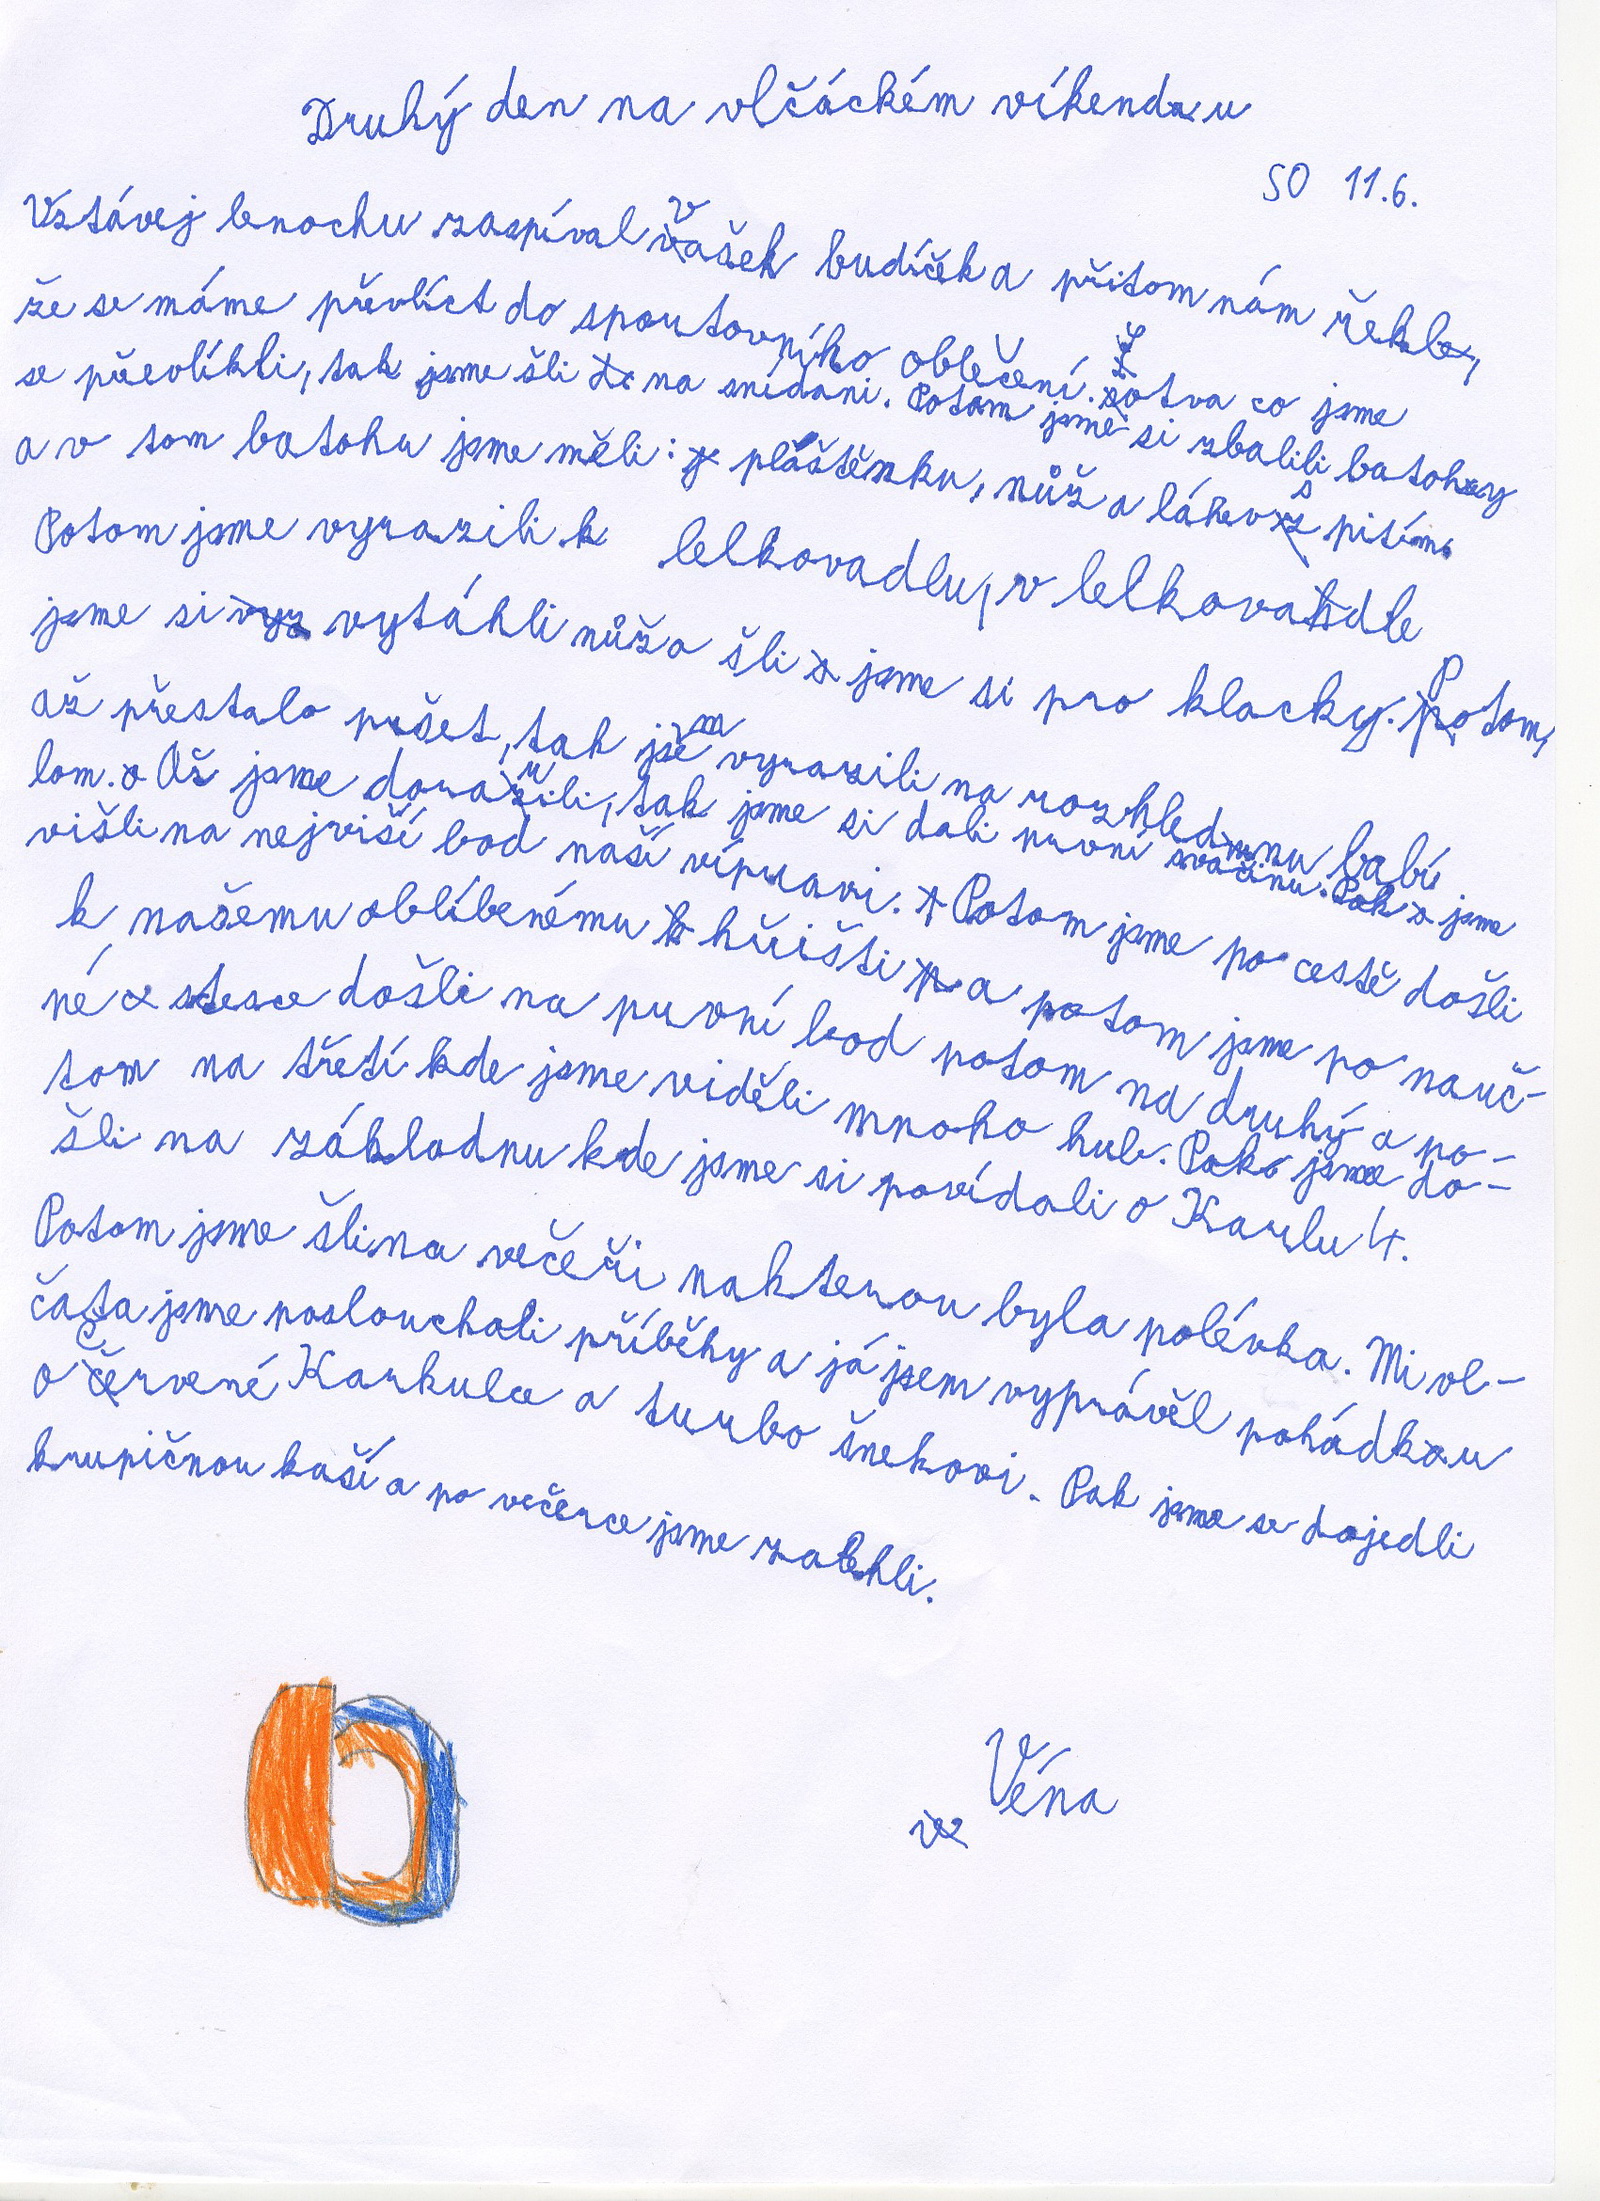 Druhý den na vlčáckém víkendu
SO 11.6.
Vstávej lenochu zaspíval Vašek budíček a přitom nám řekl,
že se máme převlíct do sportovního oblečení. Sotva co jsme
se převlíkli, tak jsme šli na snídani. Potom jsme si zbalili batohy
a v tom batohu jsme měli: pláštěnku, nůž a láhev s pitím.
Potom jsme vyrazili k lelkovadlu, v lelkovadle
jsme si vytáhli nůž a šli jsme si pro klacky. Potom,
až přestalo pršet, tak jsme vyrazili na rozhlednu babí
lom. Až jsme dorazili, tak jsme si dali první svačinu. Pak jsme
višli na nejviší bod naší vípravi. Potom jsme po cestě došli
k našemu oblíbenému hřišti a potom jsme po nauč-
né stesce došli na první bod potom na druhý a po-
tom na třetí kde jsme viděli mnoho hub. Pak jsme do-
šli na základnu kde jsme si povídali o Karlu 4.
Potom jsme šli na večeři nakterou byla polévka. Mi vl-
čata jsme poslouchali příběhy a já jsem vyprávěl pohádku
o Červené Karkulce a turbo šnekovi. Pak jsme se dojedli
krupičnou kaší a po večerce jsme zalehli.
Véna